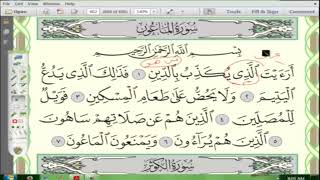 Tools
Fill & Sign
Comment
سُورَةُ المَاعُونِ
بِسْمِ اللَّهِ الرَّحْمَٰنِ الرَّحِيمِ
أَرَءَيْتَ الَّذِي يُكَذِّبُ بِالدِّينِ ١ فَذَٰلِكَ الَّذِي يَدُعُّ
الْيَتِيمَ ٢ وَلَا يَحُضُّ عَلَىٰ طَعَامِ الْمِسْكِينِ ٣ فَوَيْلٌ
لِلْمُصَلِّينَ ٤ الَّذِينَ هُمْ عَنْ صَلَاتِهِمْ سَاهُونَ
٥ الَّذِينَ هُمْ يُرَاءُونَ ٦ وَيَمْنَعُونَ الْمَاعُونَ ٧
سُورَةُ الكَوْثَرِ